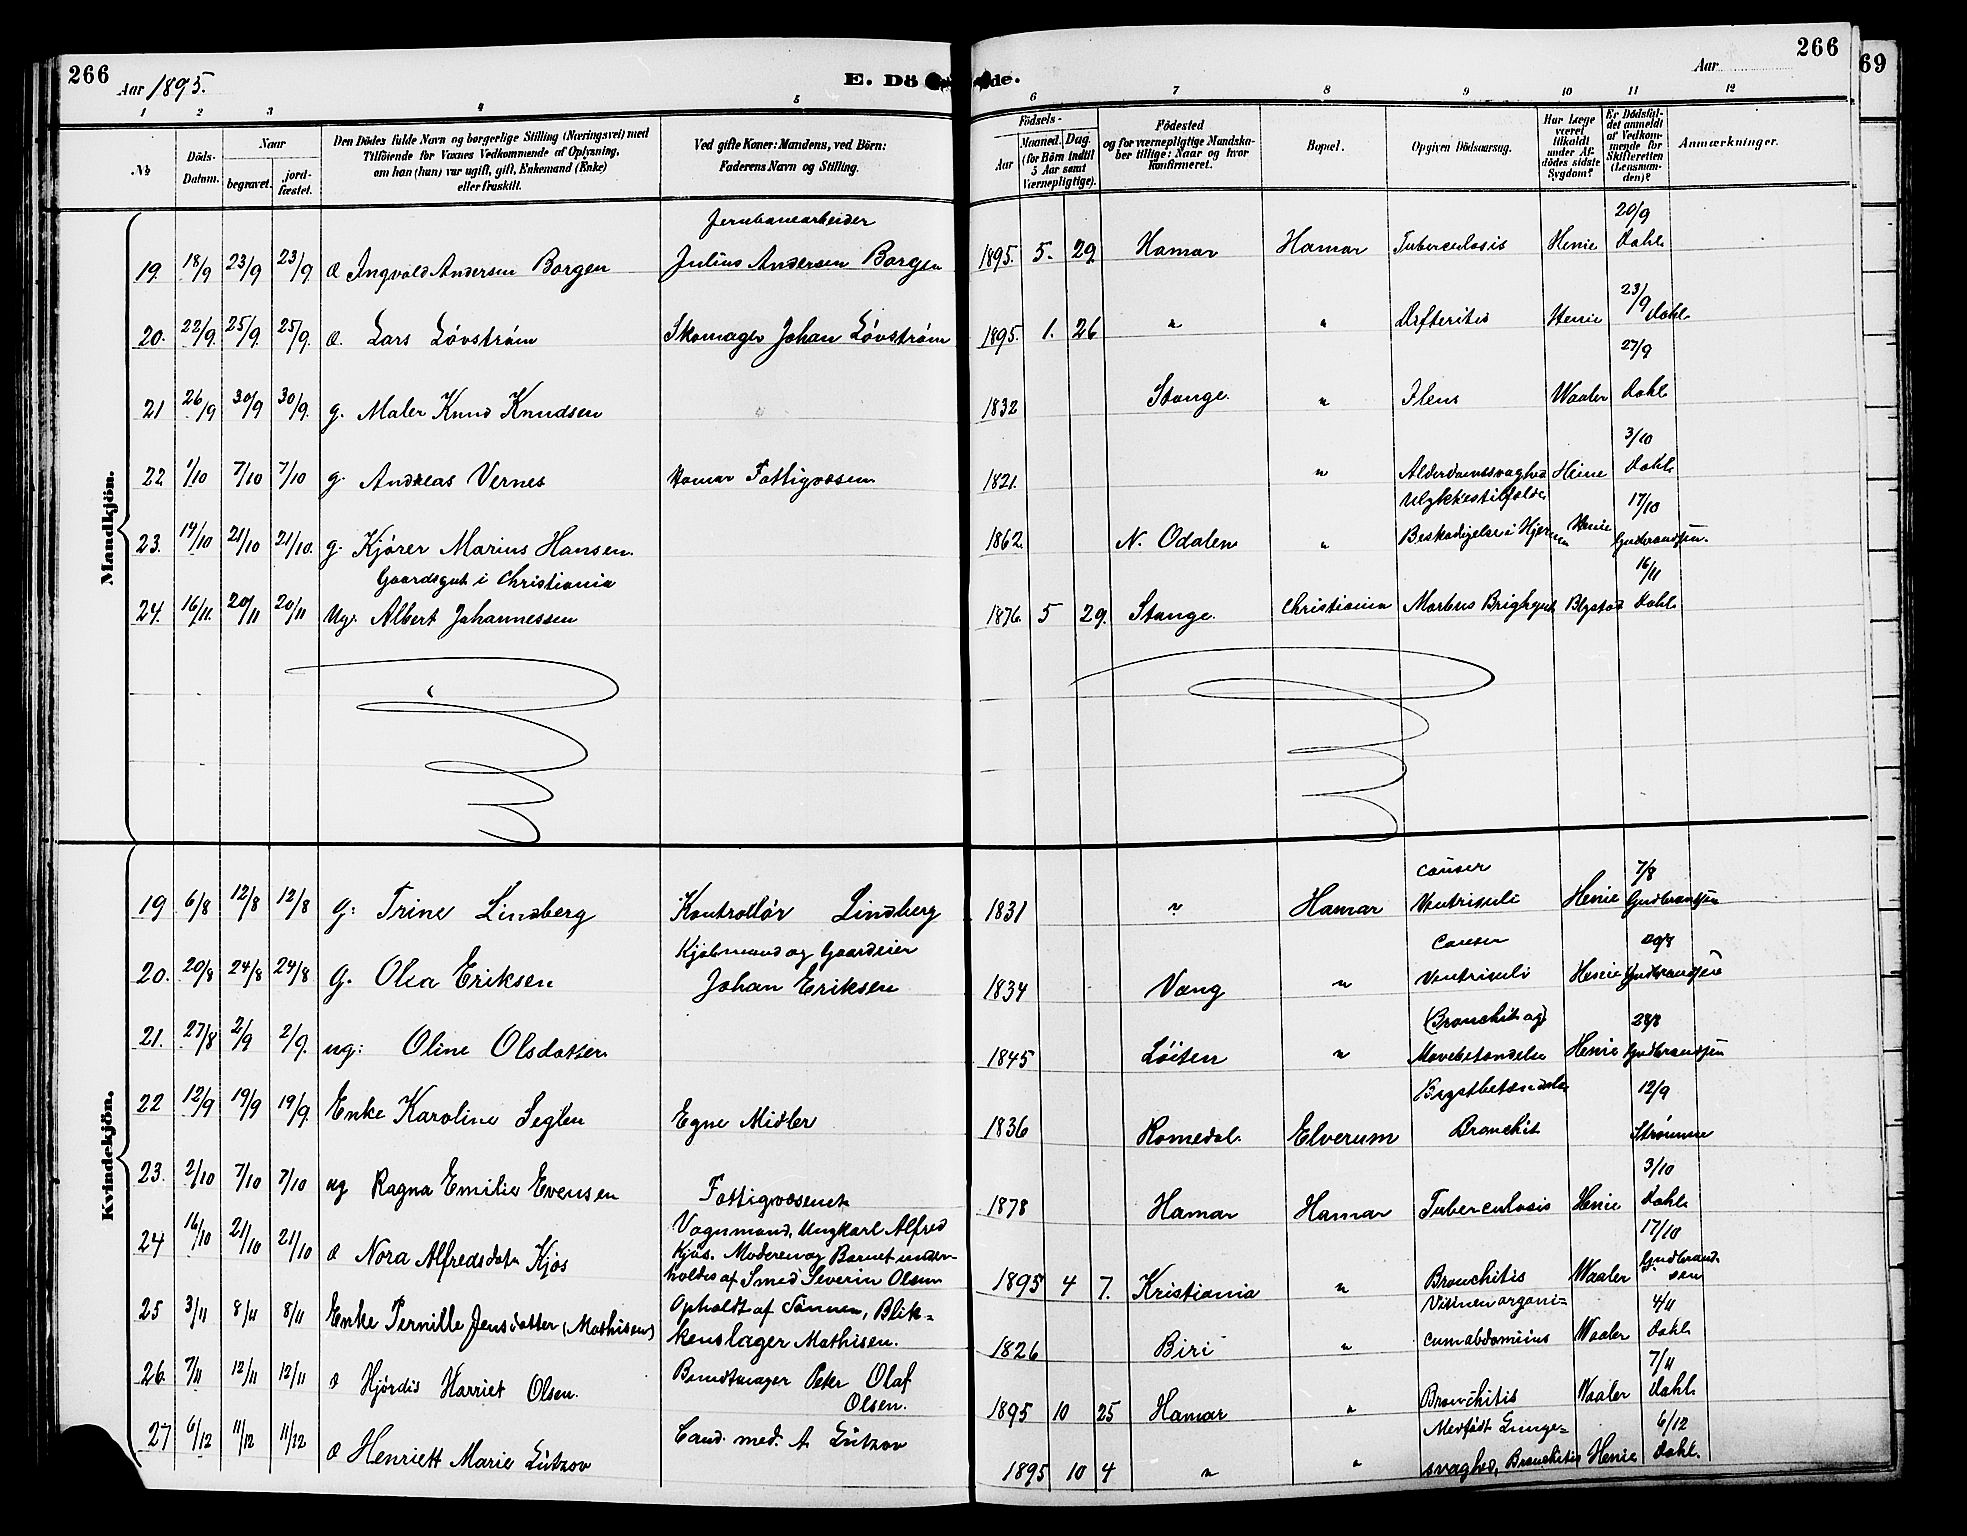 266
Aar 1895.
E. Dö
de.
Aar
266
69
1 2 3 4 5 6 7 8 9 10 11 12
No
Döds-Datum.
Naar
begravet.
jord-fæstet.
Den Dödes fulde Navn og borgerlige Stilling (Næringsvei) med
Tilföiende for Voxnes Vedkommende af Oplysning,
om han (hun) var ugift, gift, Enkemand (Enke)
eller fraskilt.
Ved gifte Koner: Mandens, ved Börn:
Faderens Navn og Stilling.
Födsels-
Aar
Maaned. Dag.
(for Börn indtil
5 Aar samt
Værnepligtige).
Födested
og for værnepligtige Mandska-
ber tillige: Naar og hvor
konfirmeret.
Bopæl.
Opgiven Dödsaarsag.
Har Læge
været
tilkaldt
under Af-
dödes sidste
Sygdom?
Er Dödsfal-
det anmeldt
af Vedkom-
mende for
Skifteretten
(Lensman-
den)?
Anmærkninger.
Mandkjön.
Jernbanearbeider 20/9
19. 18/9 23/9 23/9. d Ingvald Andersen Borgen Julius Andersen Borgen 1895. 5. 29 Hamar Hamar Tuberculosis Henie Dahl
23/9
20. 22/9. 25/9. 25/9. d. Lars Lövström Skomager Johan Lövström 1895. 1. 26 " " Difteritis Henie Dahl
27/9
21 26/9 30/9 30/9. g. Maler Knud Knudsen 1832 Stange " Ilens Waaler Dahl
3/10
22 1/10 7/10 7/10 g. Andreas Vernes Hamar Fattigvæsen 1821. " Alderdomssvaghed Henie Dahl
Ulykkestilfælde 17/10
23. 14/10 21/10 21/10. g. Kjører Marius Hansen. 1862. N. Odalen " Beskadigelse i Hjernen Henie Gudbrandsen.
Gaardsgut i Christiania 16/11
24. 16/11. 20/11 20/11 Ug. Albert Johannessen 1876. 5 29. Stange. Christiania Morbus Brighgut Blystad Dahl
Kvindekjön.
Cancer 7/8
19 6/8 12/8 12/8 g: Trine Lindberg Kontrollör Lindberg 1831 " Hamar Ventriculi Henie Gudbrandsen
Kjøbmand og Gaardeier Cancer 20/8
20. 20/8 24/8 24/8 g. Olea Eriksen Johan Eriksen 1834 Vang " Ventriculi Henie Gudbrandsen
(Bronchit og) 28/8
21. 27/8 2/9 2/9. ug: Oline Olsdatter 1845 Löiten " Mavebetændelse Henie Gudbrandsen
Brystbetændelse 12/9
22 12/9 19/9 19/9. Enke Karoline Seglen Egne Midler 1836 Romedal. Elverum Bronchit Strømme
3/10
23. 2/10 7/10 7/10 ug Ragna Emilie Evensen Fattigvæsenet 1878 Hamar Hamar Tuberculosis Henie Dahl
Vognmand, Ungkarl Alfred 17/10
24 16/10 21/10 21/10 d Nora Alfredsdatr Kjos Kjos. Moderen og Barnet under-
holdes af Smed Severin Olsen 1895 4 7. Kristiania " Bronchitis Waaler Gudbrand-
sen
Opholdt af Sønnen, Blik- Vitium organi- 4/11
25 3/11 8/11 8/11 Enke Pernille Jensdatter (Mathisen) kenslager Mathisen. 1826 Biri " cum abdominis Waaler Dahl
7/11
26. 7/11 12/11 12/11 d Hjördis Harriet Olsen. Bundtmager Peter Olaf
Olsen. 1895 10 25 Hamar " Bronchitis Waaler Dahl
Medfødt Lunge- 6/12
27 6/12 11/12 11/12 d Henriett Marie Lützow Cand. med. A. Lützow 1895 10 4 " " svaghed, Bronchitis Henie Dahl.